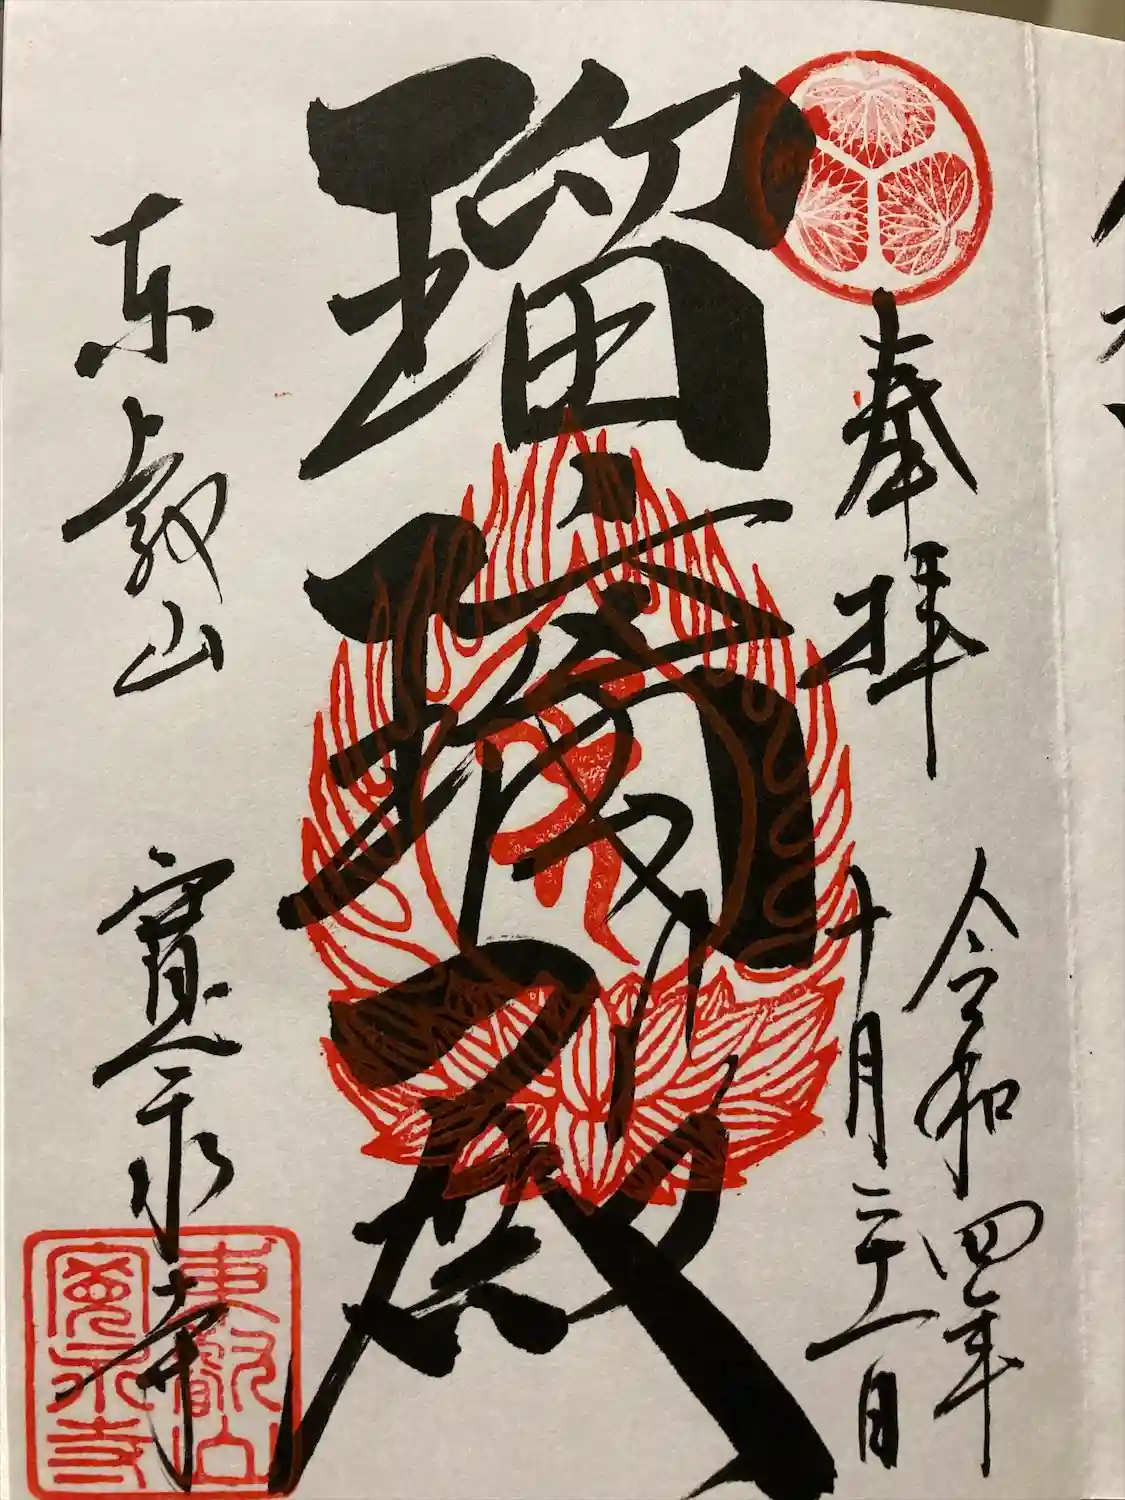 奉拝
令和四年
十月二十一日
瑠璃殿
東叡山 寛永寺
東叡山
寛永寺